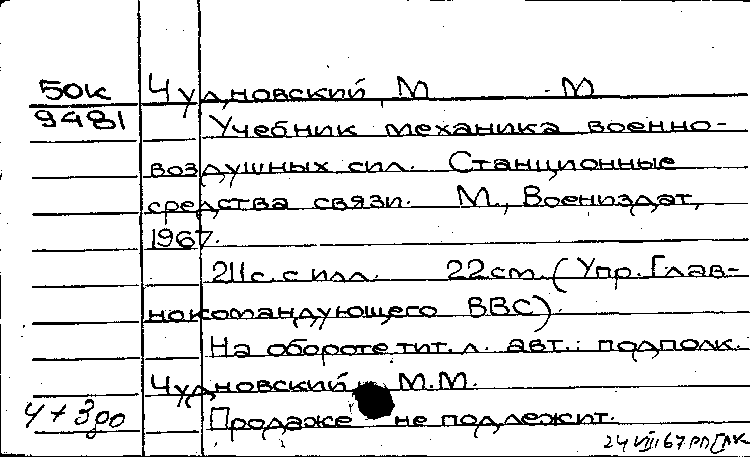 50к Чудновский, М М
9481 Учебник механика военно-
воздушных сил. Станционные
средства связи. М., Воениздат,
1967.
211с. с илл. 22 см. (Упр. Глав-
нокомандующего ВВС).
На обороте тит. л. авт.: подполк.
Чудновский М.М.
4+3до Продаже не подлежит.
24 VIII 67